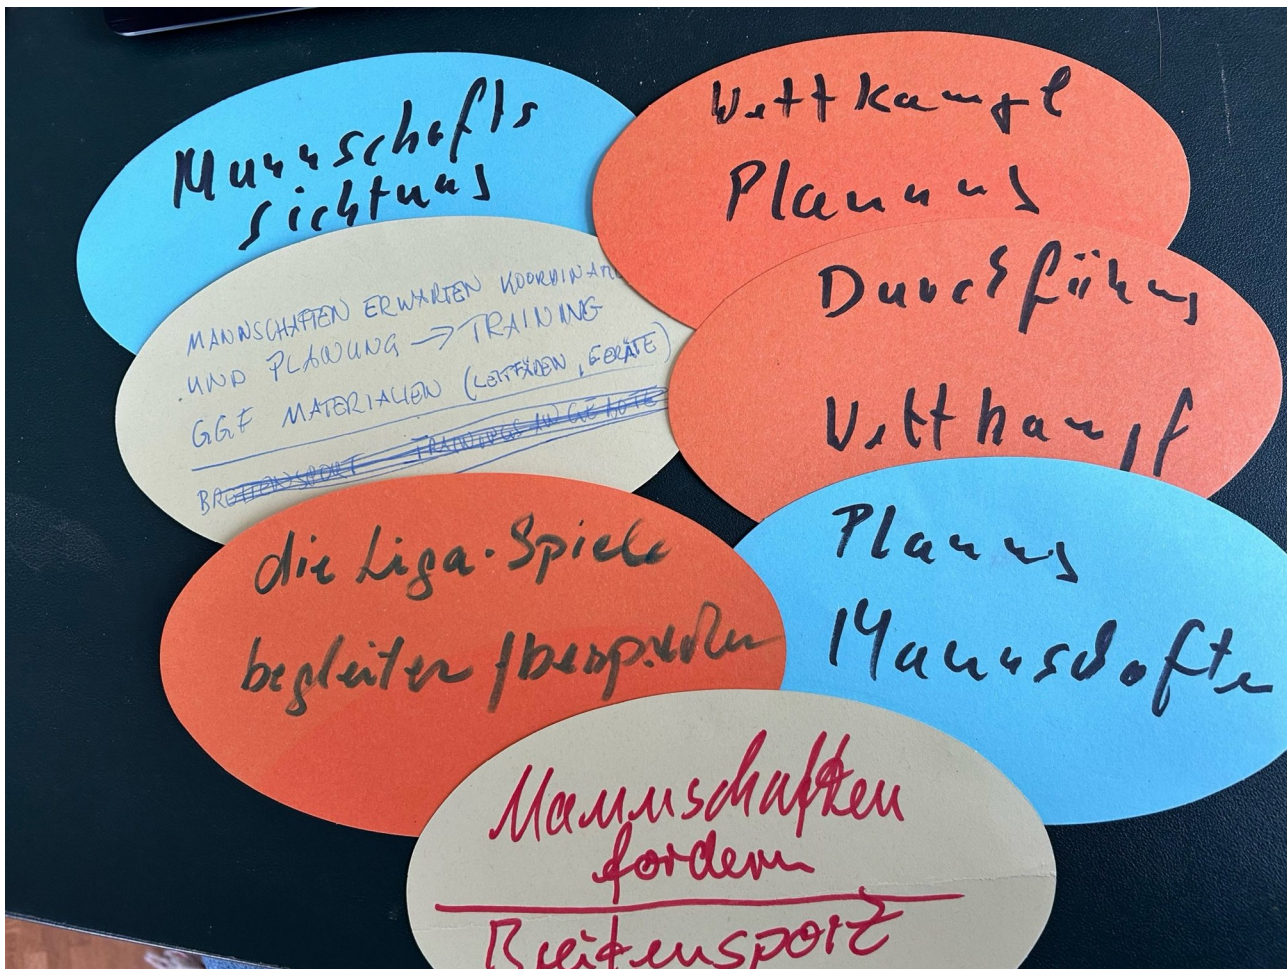 Mannschafts
sichtung
Wettkampf
Planung
MANNSCHAFTEN ERWARTEN KOORDINAT
UND PLANUNG → TRAINING
GGF MATERIALIEN (LEITFÄDEN, GERÄTE)
BREITENSPORT TRAININGSANGEBOTE
Durchführung
Wettkampf
die Liga-Spiele
begleiten /
Planung
Mannschaften
Mannschaften
fordern
Breitensport